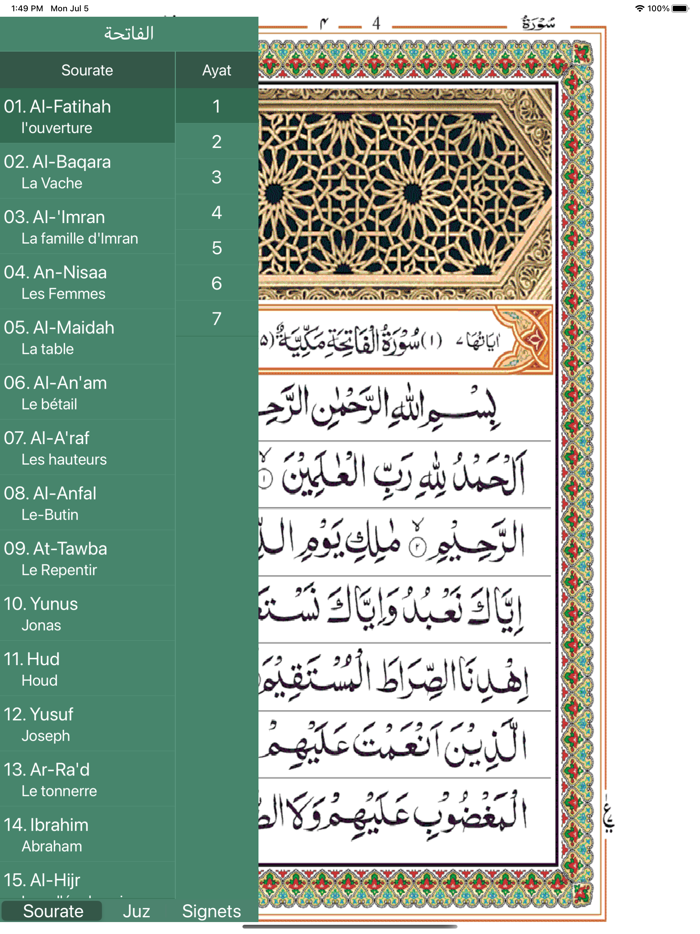 1:49 PM Mon Jul 5
100%
الفاتحة
Sourate
Ayat
01. Al-Fatihah
l'ouverture
02. Al-Baqara
La Vache
03. Al-'Imran
La famille d'Imran
04. An-Nisaa
Les Femmes
05. Al-Maidah
La table
06. Al-An'am
Le bétail
07. Al-A'raf
Les hauteurs
08. Al-Anfal
Le-Butin
09. At-Tawba
Le Repentir
10. Yunus
Jonas
11. Hud
Houd
12. Yusuf
Joseph
13. Ar-Ra'd
Le tonnerre
14. Ibrahim
Abraham
15. Al-Hijr
1
2
3
4
5
6
7
Sourate
Juz
Signets
۴ 4 سُوْرَةُ
اٰيَاتُهَا ٧ (١) سُوْرَةُ الْفَاتِحَةِ مَكِّيَّةٌ (٥
بِسْمِ اللّٰهِ الرَّحْمٰنِ
اَلْحَمْدُ لِلّٰهِ رَبِّ الْعٰلَمِيْنَ ١
الرَّحِيْمِ ٢ مٰلِكِ يَوْمِ
اِيَّاكَ نَعْبُدُ وَاِيَّاكَ
اِهْدِنَا الصِّرَاطَ الْمُسْتَقِيْمَ
الَّذِيْنَ اَنْعَمْتَ عَلَيْهِمْ
الْمَغْضُوْبِ عَلَيْهِمْ وَلَا